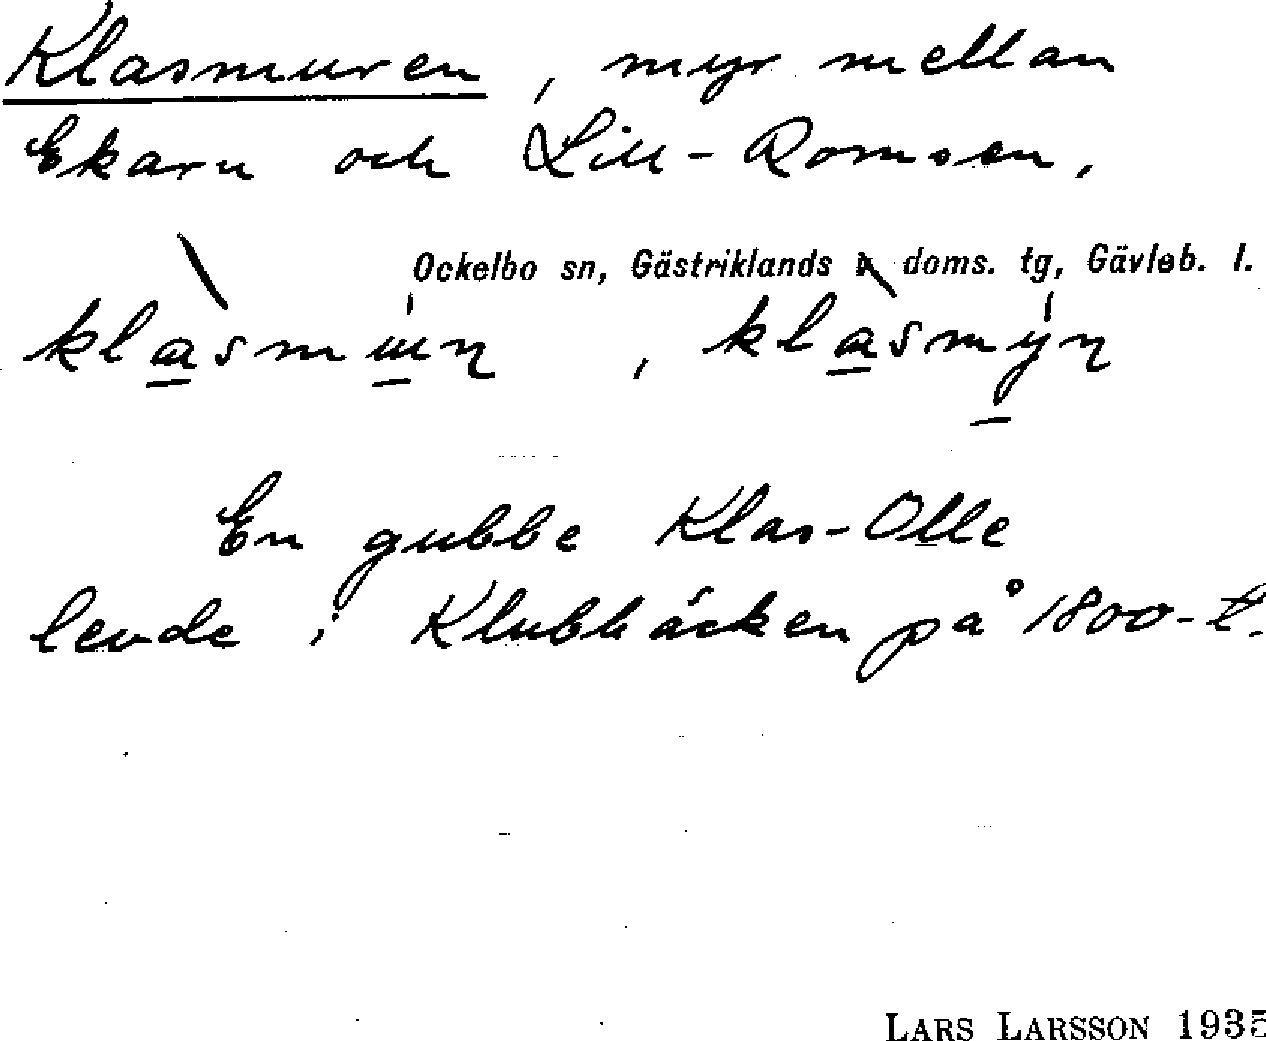 Klasmuren, myr mellan
Ekarn och Lill-Romsen.
Ockelbo sn, Gästriklands doms. tg, Gävleb. l.
En gubbe Klas-Olle
levde i Klubbäcken på 1800-t.
LARS LARSSON 1935